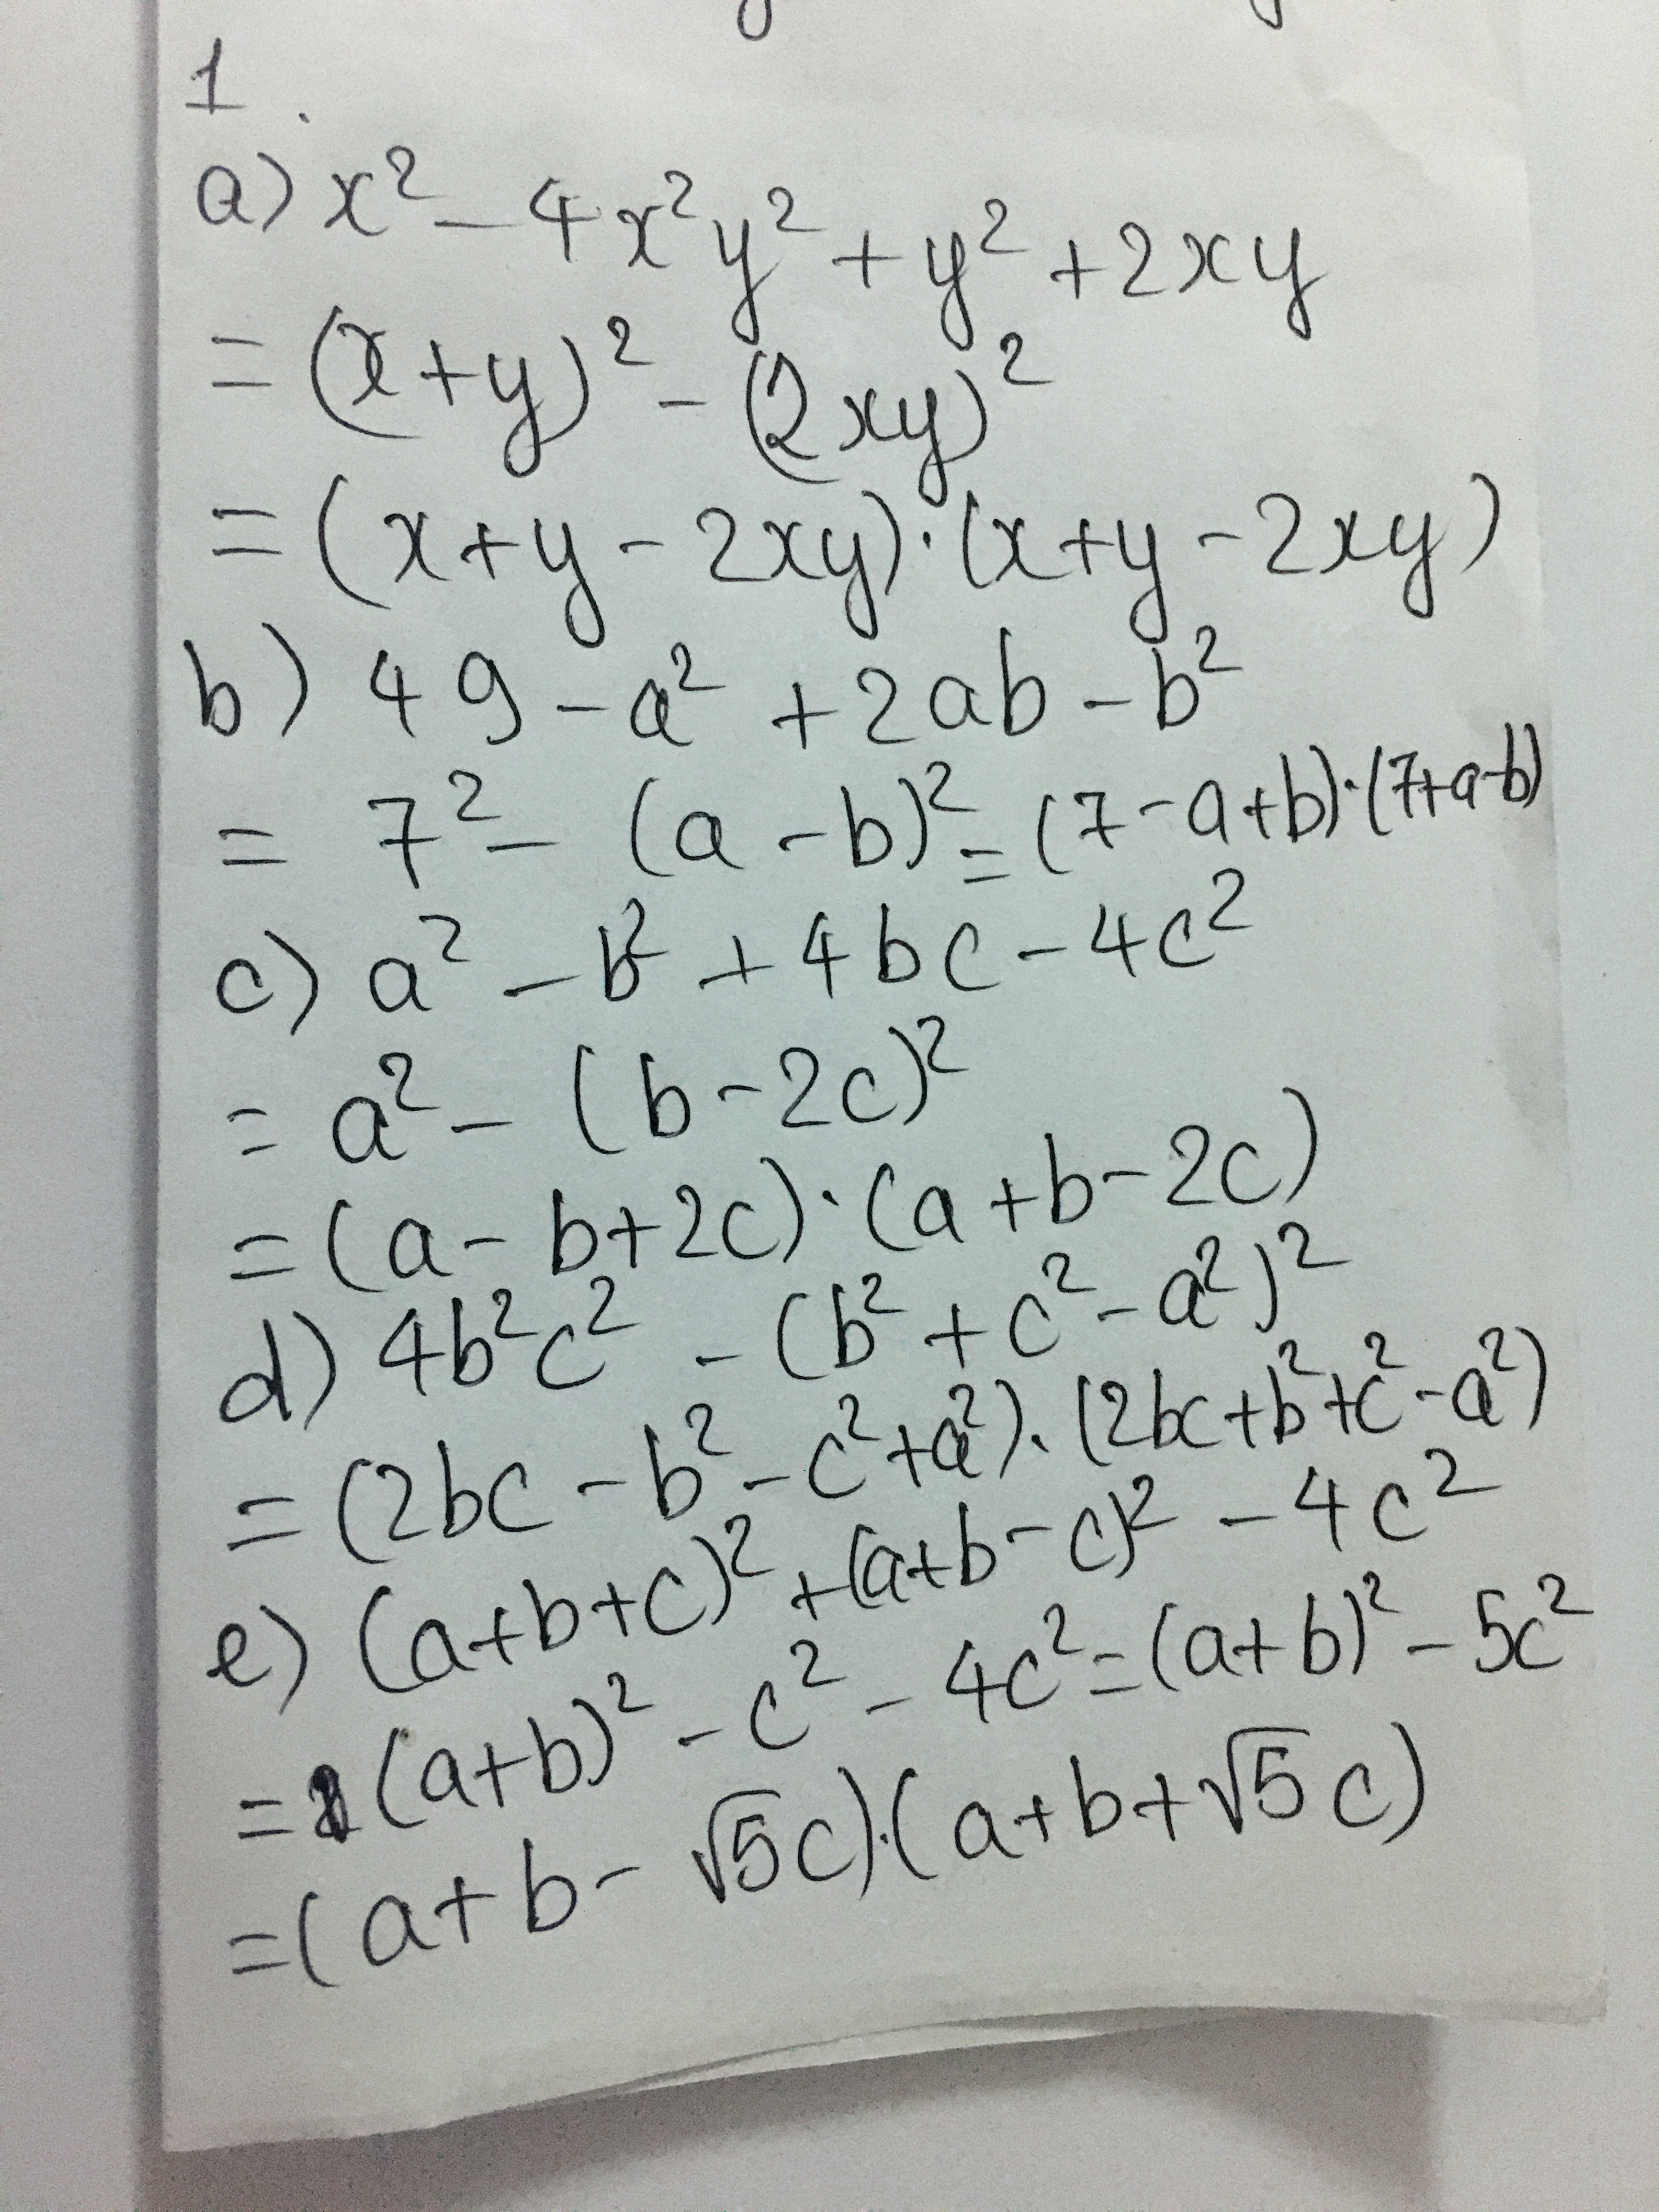 1.
a) x² - 4x²y² + y² + 2xy
= (x+y)² - (2xy)²
= (x+y-2xy)·(x+y-2xy)
b) 49 - a² + 2ab - b²
= 7² - (a-b)² = (7-a+b)·(7+a-b)
c) a² - b² + 4bc - 4c²
= a² - (b-2c)²
= (a-b+2c)·(a+b-2c)
d) 4b²c² - (b²+c²-a²)²
= (2bc-b²-c²+a²)·(2bc+b²+c²-a²)
e) (a+b+c)² + (a+b-c)² - 4c²
= (a+b)² - c² - 4c² = (a+b)² - 5c²
= (a+b-√5c)·(a+b+√5c)